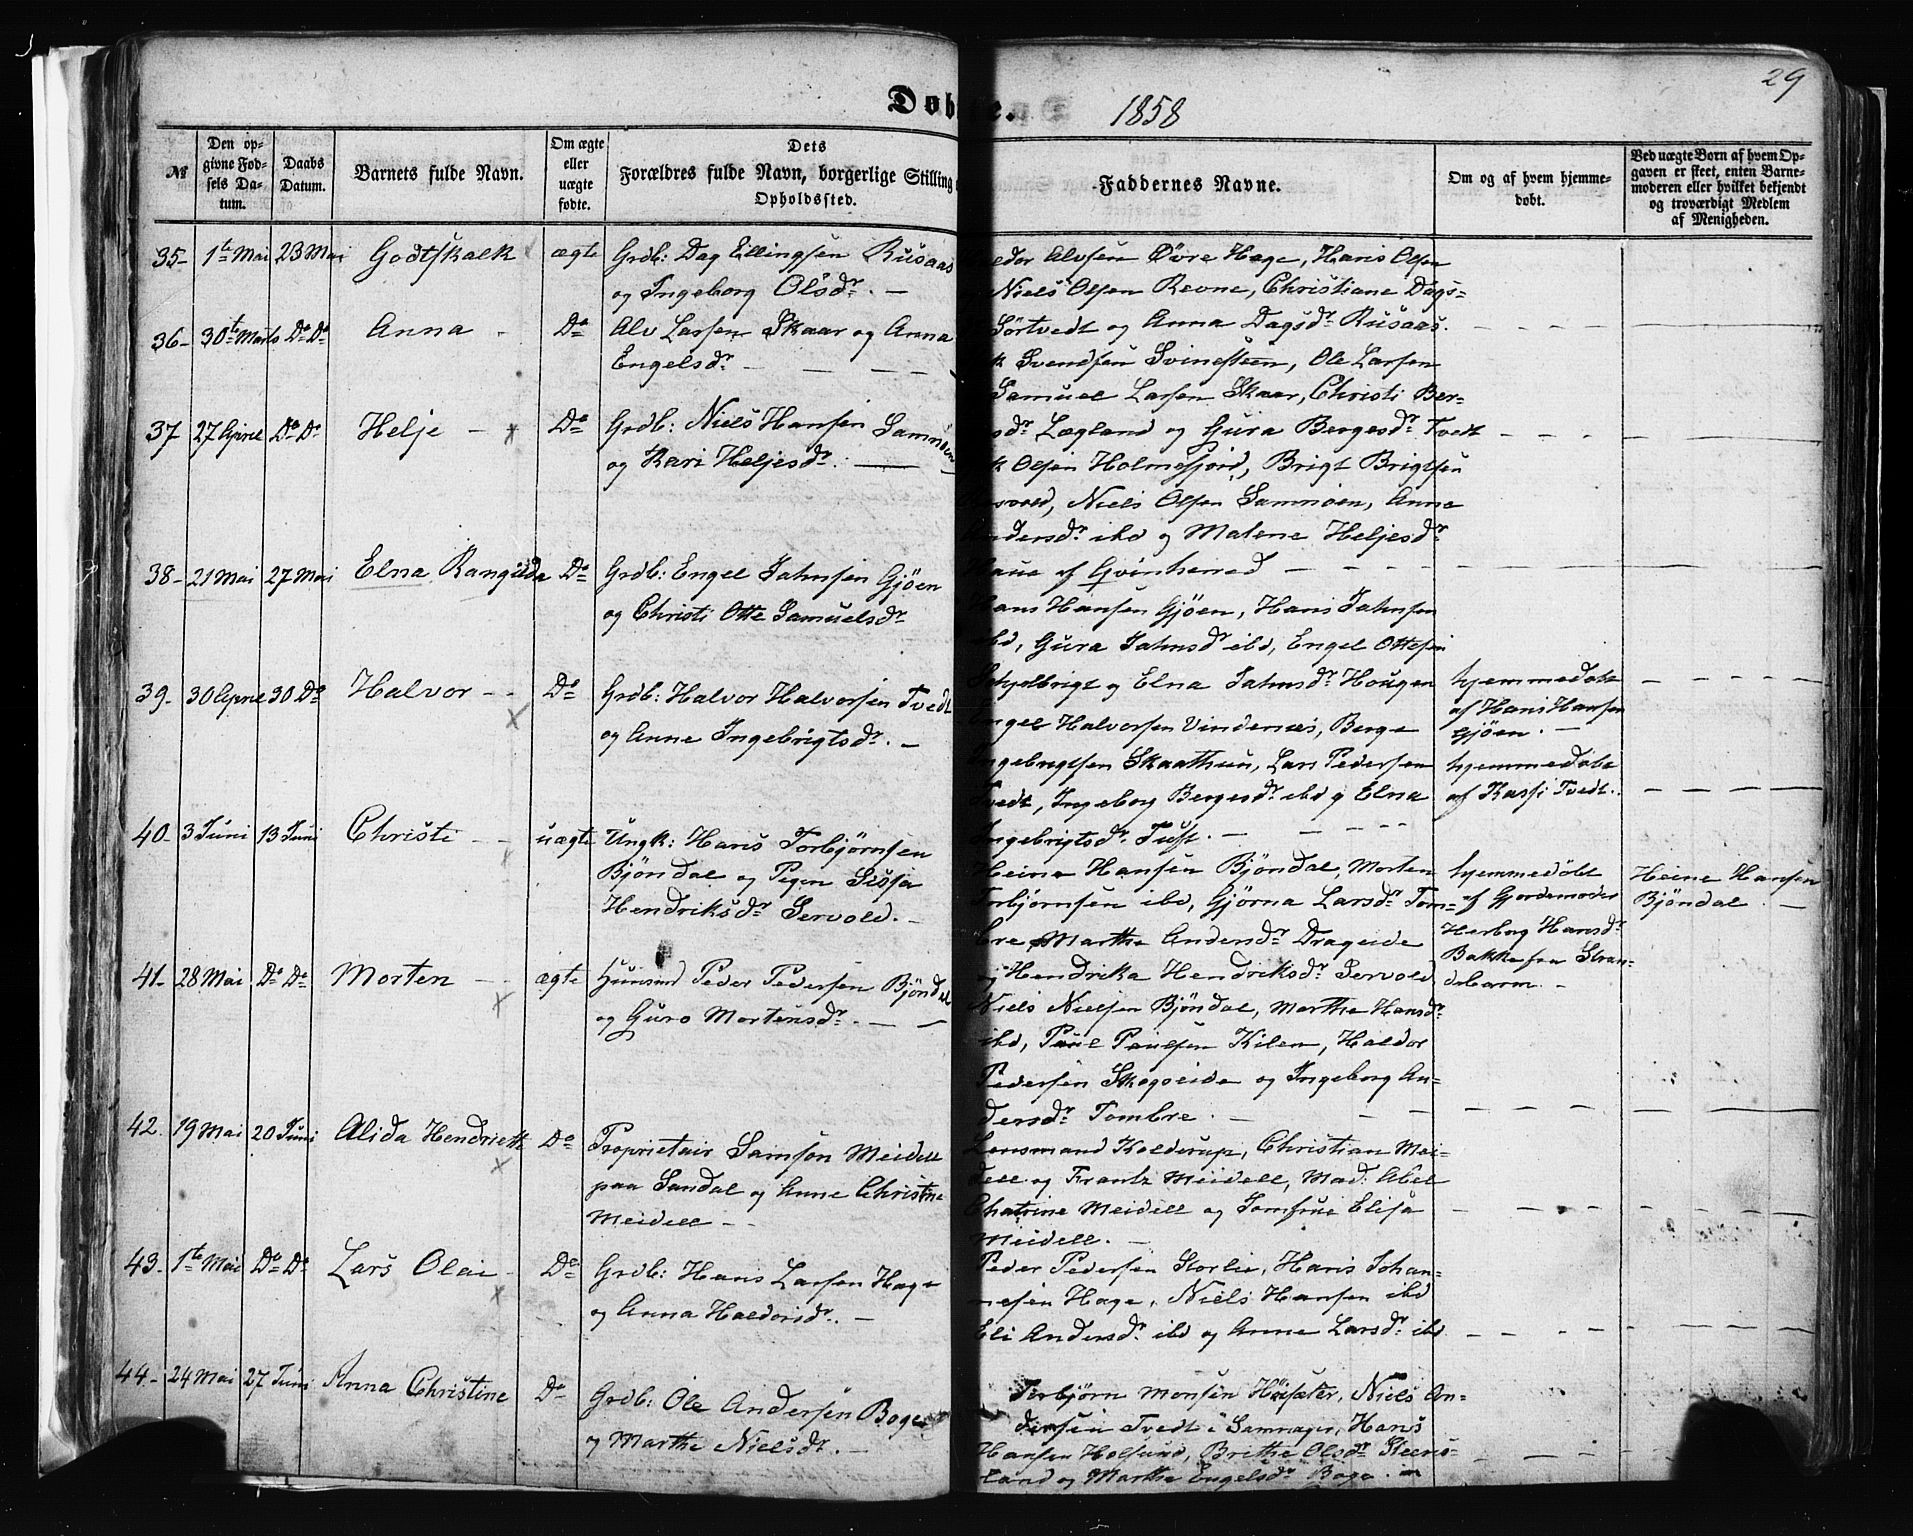 29
Døbte. 1858
№
Den opgivne Fødsels Datum.
Daabs Datum.
Barnets fulde Navn.
Om ægte eller uægte fødte.
Dets Forældres fulde Navn, borgerlige Stilling
Opholdssted.
Faddernes Navne.
Om og af hvem hjemmedøbt.
Ved uægte Børn af hvem Opgaven er skeet, enten Barnemoderen eller hvilket bekjendt og troværdigt Medlem af Menigheden.
35- 1te Mai 23 Mai Godtskalk ægte Grdb: Dag Ellingsen Rusaas
og Ingeborg Olsdr. —
Alvsen Øvre Hage, Hans Olsen
Niels Olsen Revne, Christiane Dags-
Sørtvedt og Anna Dagsdr Rusaas.
36- 30te Marts Do Do Anna - Do Alv Larsen Skaar og Anna
Engelsdr. — — — —
Svendsen Svinesteen, Ole Larsen
Samuel Larsen Skaar, Christi Ber-
sdr Lægland og Gura Bergesdr Tvedt
37 27 April Do Do Helje - Do Grdb: Niels Hansen Samnøen
og Kari Heljesdr. —
Olsen Holmefjord, Brigt Brigtsen
Niels Olsen Samnøen, Anne
Andersdr ibd og Malene Heljesdr
af Qvinherred
38- 21 Mai 27 Mai Elna Rangilda Do Grdb: Engel Jahnsen Gjøen
og Christi Otte Samuelsdr
Hans Hansen Gjøen, Hans Jahnsen
ibd, Gura Jahnsdr ibd, Engel Ottesen
Schjelbrigt og Elna Jahnsdr Hougen
hjemmedøbt
af Hans Hansen
Gjøen. —
39. 30 April 30 Do Halvor - - Do Grdb: Halvor Halvorsen Tvedt
og Anne Ingebrigtsdr. —
Engel Halvorsen Vindenes, Berge
Ingebrigtsen Skaathun, Lars Pedersen
Tvedt, Ingeborg Bergesdr ibd og Elna
Ingebrigtsdr Tuft. —
hjemmedøbt
af Tvedt.
40. 3 Juni 13 Juni Christi - - uægte Ungk: Hans Torbjørnsen
Bjøndal og Pigen Sissa
Hendriksdr Servold. —
Heine Hansen Bjøndal, Morten
Torbjørnsen ibd, Gjørna Larsdr Tom-
bre, Marthe Andersdr Drageide
og Hendrika Hendriksdr Servold
hjemmedøbt
af Gjordemoder
Herborg Hansdr
Bakke fra Stran-
debarm. —
Heine Hansen
Bjøndal. —
41. 28 Mai Do Do Morten - - ægte Huusmd Peder Pedersen Bjøndal
og Guro Mortensdr. — —
Niels Nielsen Bjøndal, Marthe Hansdr
ibd, Poul Poulsen Kilen, Haldor
Pedersen Skogseide og Ingeborg An-
dersdr Tombre. —
42. 19 Mai 20 Juni Alida Hendriette Do Proprietair Samson Meidell
paa Sandal og Anne Christine
Meidell - -
Lensmand Kolderup, Christian Mei-
dell og Frantz Meidell, Mad: Abel
Chatrine Meidell og Jomfrue Elisa
Meidell. —
43. 1te Mai Do Do Lars Olai - Do Grdb: Hans Larsen Hage
og Anna Haldorsdr. —
Peder Pedersen Storlie, Hans Johan-
nesen Hage, Niels Hansen ibd
Eli Andersdr ibd og Anne Larsdr ibd
44.- 24 Mai 27 Juni Anna Christine Do Grdb: Ole Andersen Boge
og Marthe Nielsdr. —
Torbjørn Monsen Høisæter, Niels An-
dersen Tvedt i Samnager, Hans
Hansen Holsund, Brithe Olsdr Steens-
land og Marthe Engelsdr Boge. —